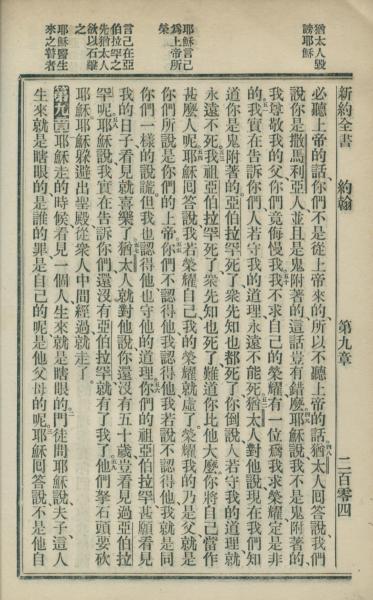 新約全書 約翰 第九章 二百零四
猶太人毀
謗耶穌
耶穌言己
爲上帝所
榮
言己在亞
伯拉罕之
先猶太人
欲以石擊
之
耶穌醫生
來之瞽者
必聽上帝的話、你們不是從上帝來的、所以不聽上帝的話、猶太人囘答說、我們
說你是撒馬利亞人、並且是鬼附著的、這話豈有錯麼、耶穌說、我不是鬼附著的、
我尊敬我的父、你們竟侮慢我、我不求自己的榮耀、有一位爲我求榮耀定是非
的、我實在告訴你們、人若守我的道理、永遠不能死、猶太人對他說、現在我們知
道你是鬼附著的、亞伯拉罕死了、衆先知也都死了、你倒說人若守我的道理、就
永遠不死、我祖亞伯拉罕死了、衆先知也死了、難道你比他大麼、你將自己當作
甚麼人呢、耶穌囘答說、我若榮耀自己、我的榮耀就虛了、榮耀我的乃是父、就是
你們所說是你們的上帝、你們不認得他、我認得他、我若說不認得他、我就是同
你們一樣的說謊、但我也認得他、也守他的道理、你們的祖亞伯拉罕甚願看見
我的日子、看見就喜樂了、猶太人就對他說、你還沒有五十歲、豈看見過亞伯拉
罕呢、耶穌說、我實在告訴你們、還沒有亞伯拉罕、就有了我了、他們拏石頭要砍
耶穌、耶穌躲避、出聖殿、從衆人中間經過就走了。
第九章 耶穌走的時候、看見一個人生來就是瞎眼的、門徒問耶穌說、夫子、這人
生來就是瞎眼的、是誰的罪、是自己的呢、是他父母的呢、耶穌囘答說、不是他自